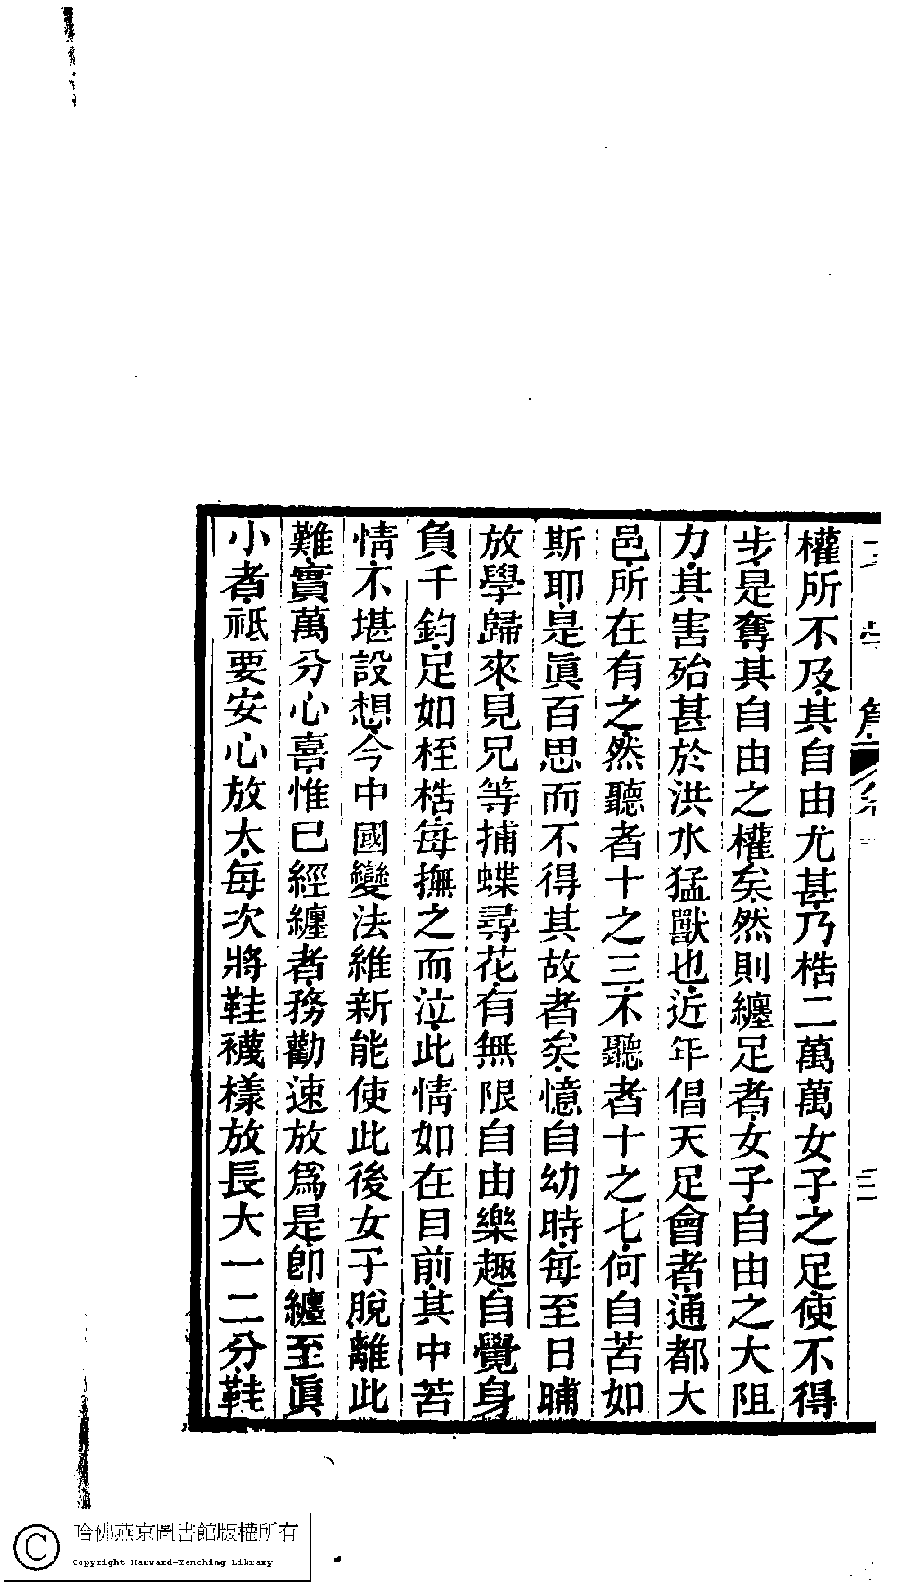 權所不及其自由尤甚乃梏二萬萬女子之足使不得
步是奪其自由之權矣然則纏足者女子自由之大阻
力其害殆甚於洪水猛獸也近年倡天足會者通都大
邑所在有之然聽者十之三不聽者十之七何自苦如
斯耶是眞百思而不得其故者矣憶自幼時每至日晡
放學歸來見兄等捕蝶尋花有無限自由樂趣自覺身
負千鈞足如桎梏每撫之而泣此情如在目前其中苦
情不堪設想今中國變法維新能使此後女子脫離此
難實萬分心喜惟已經纏者務勸速放爲是卽纏至眞
小者祇要安心放大每次將鞋襪樣放長大一二分鞋
哈佛燕京圖書館版權所有
Copyright Harvard-Yenching Library